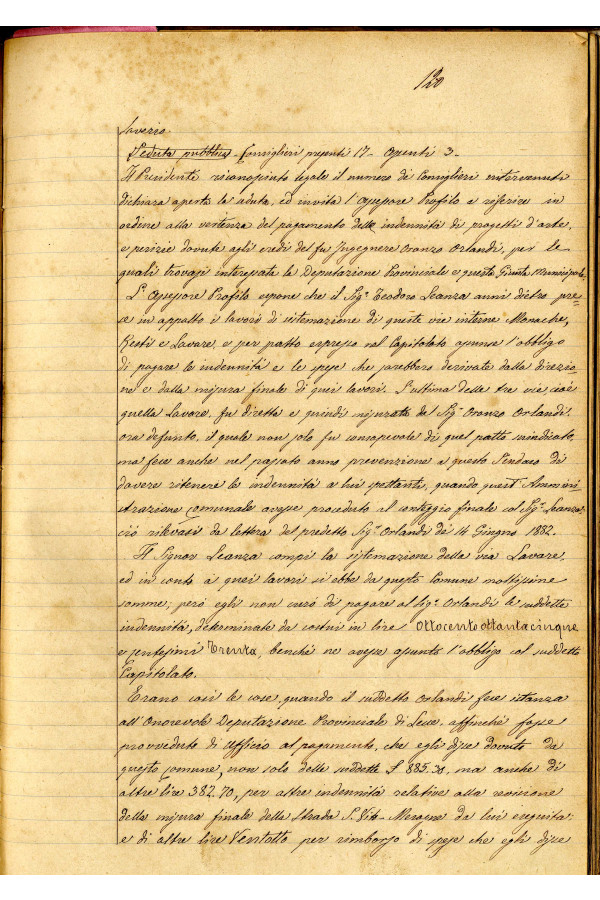 130
Saverio.
Seduta pubblica - Consiglieri presenti 17 - Assenti 3 -
Il Presidente riconosciuto legale il numero di Consiglieri intervenuti
dichiara aperta la seduta, ed invita l'assessore Profilo a riferire in
ordine alla vertenza del pagamento delle indennità di progetti d'arte,
e perizie dovute agli eredi del fu Ingegnere Oronzo Orlandi, per le
quali trovasi interessate la Deputazione Provinciale e questa Giunta Municipale.
L'assessore Profilo espone che il Sig. Teodoro Leanza anni dietro pre=
se in appalto i lavori di sistemazione di queste vie interne Monache,
Resti e Lavare, e per patto espresso nel Capitolato assunse l'obbligo
di pagare le indennità e le spese che sarebbero derivate dalla direzio
ne e dalla misura finale di quei lavori. L'ultima delle tre vie, cioè
quella Lavare, fu diretta e quindi misurata dal Sig. Oronzo Orlandi,
ora defunto, il quale non solo fu consapevole di quel patto suindicato,
ma fece anche nel passato anno prevenzione a questo Sindaco di
dovere ritenere le indennità a lui spettante, quando quest'Ammini
strazione comunale avesse proceduto al conteggio finale col Sig. Leanza,
ciò rilevasi da lettera del predetto Sig. Orlandi de 14 Giugno 1882.
Il Signor Leanza compì la sistemazione della via Lavare,
ed in conto a quei lavori si ebbe da questo Comune moltissime
somme; però egli non curò di pagare al Sig. Orlandi le suddette
indennità, determinate da costui in lire Ottocentottantacinque
e centesimi trenta, benché ne avesse assunto l'obbligo col suddetto
Capitolato.
Erano così le cose, quando il suddetto Orlandi fece istanza
all'Onorevole Deputazione Provinciale di Lecce, affinché fosse
provveduto di ufficio al pagamento, che egli disse dovuto da
questo comune, non solo delle suddette £ 885.30, ma anche di
altre lire 382.70, per altre indennità relative alla revisione
della misura finale della strada S. Vito - Mesagne da lui eseguita;
e di altre lire Ventotto per rimborso di spese che egli disse